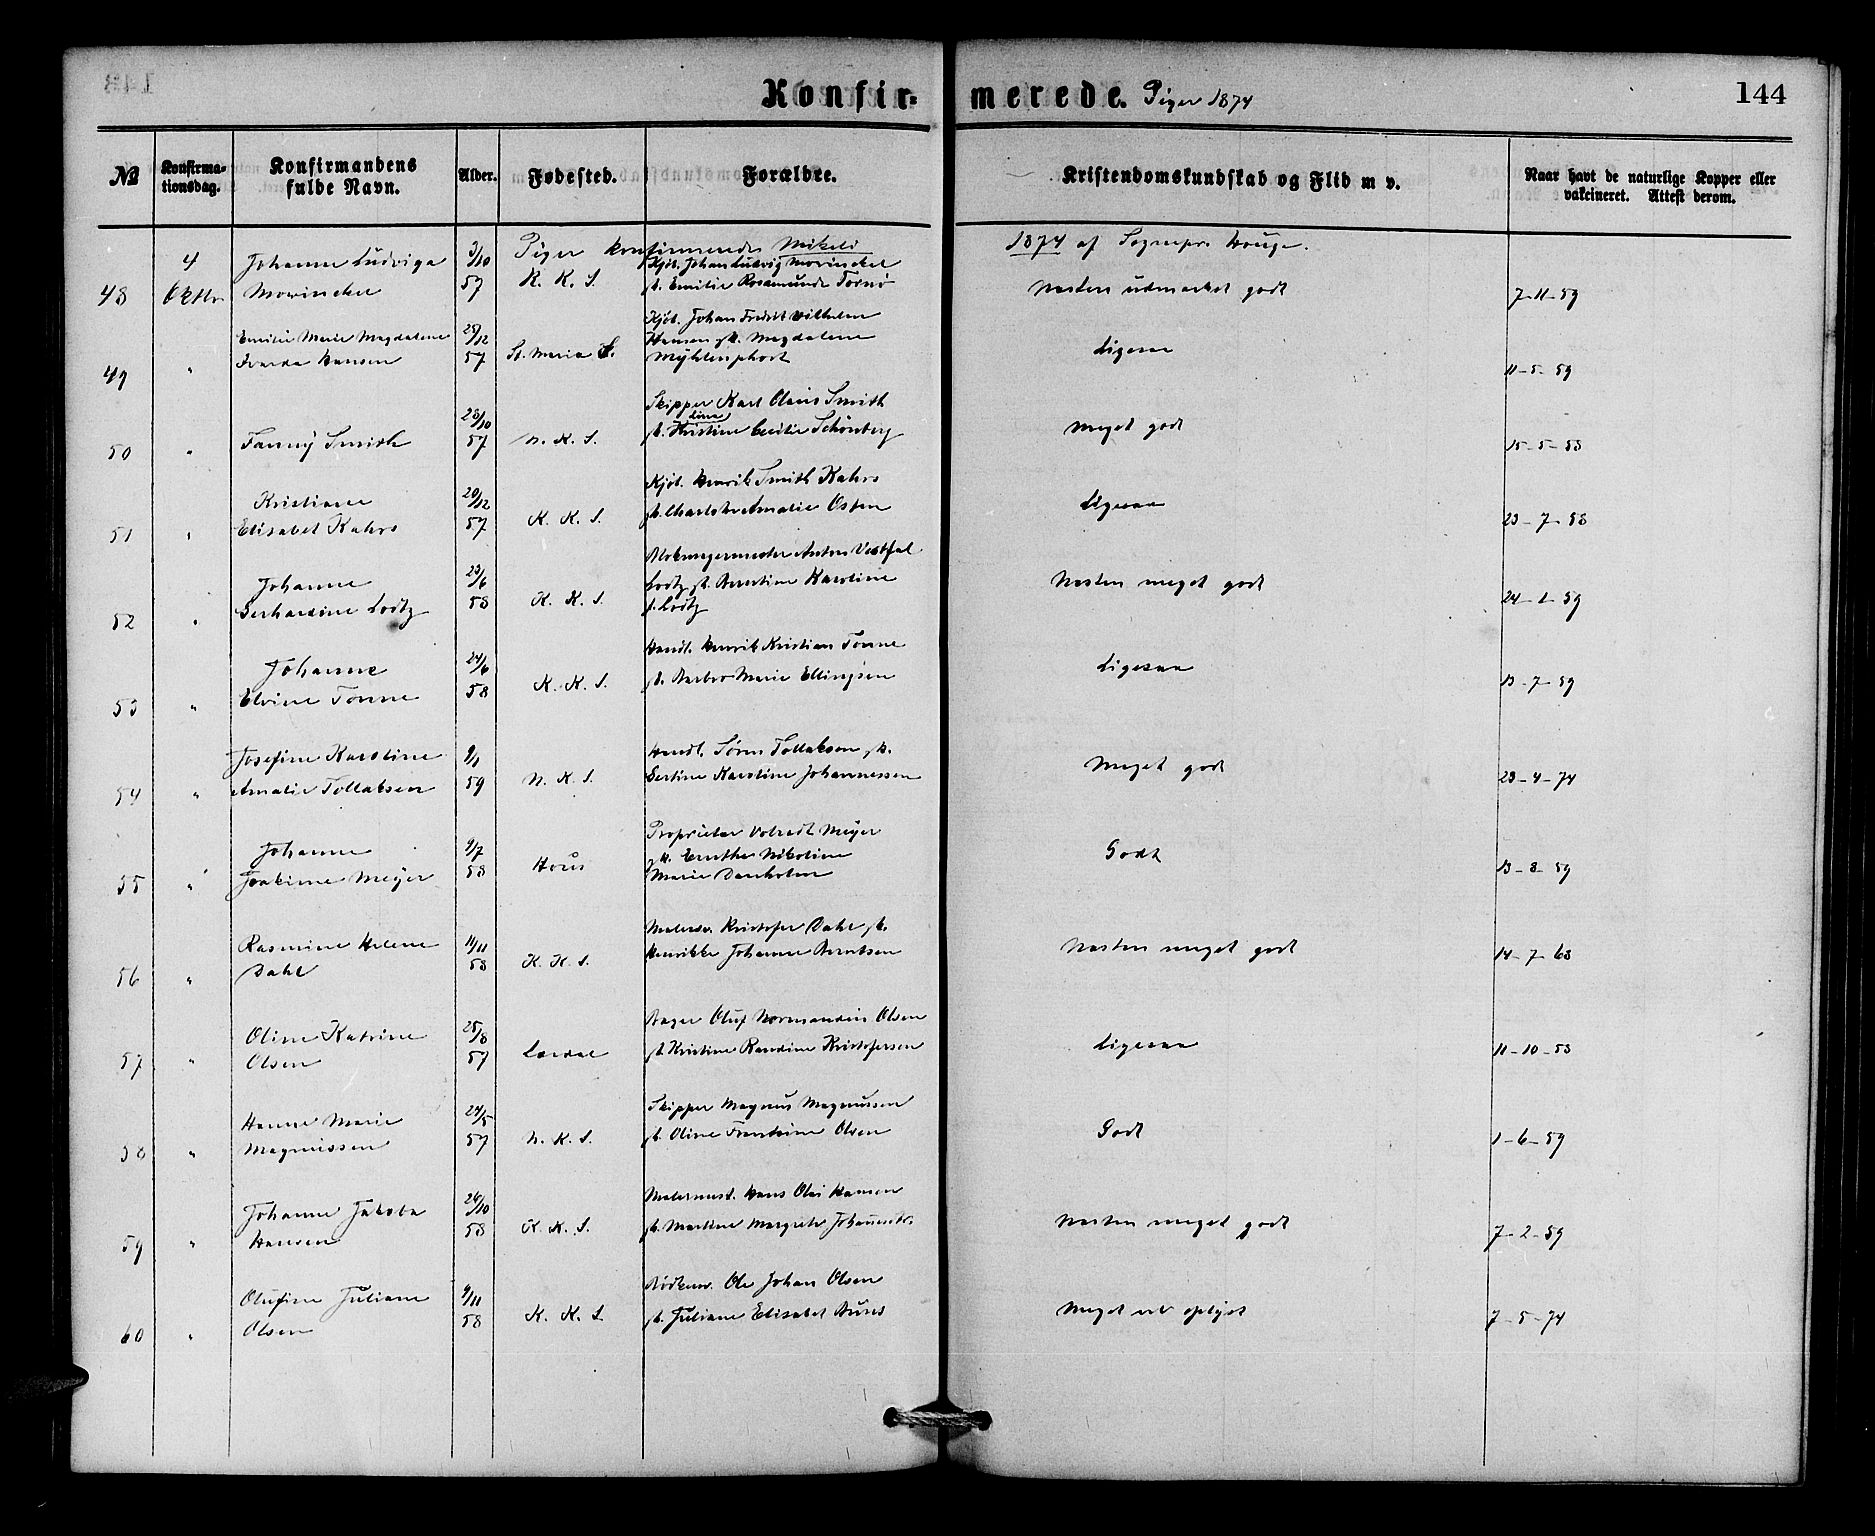 Konfirmerede. Piger 1874
144
№
Konfirmationsdag.
Konfirmandens fulde Navn.
Alder.
Fødested.
Forældre.
Kristendomskundskab og Flid m v.
Naar havt de naturlige Kopper eller vakcineret. Attest derom.
Piger konfirmerede Mikeli 1874 af Sognepr. Houge.
48
4 Oktbr
Johanne Ludviga
Mowinckel
3/10 57
K. K. S.
Kjøb. Johan Ludvig Mowinckel
Emilie Rosamunde
Næsten udmærket godt
7-11-59
49
"
Emilie Marie Magdalene
Hansen
29/12 57
St. Maria S.
Kjøb. Johan Fredrik Wilhelm
Hansen gk. Magdalene
Myhlenphort
Ligesaa
11-5-59
50
"
Fanny Smith
28/10 57
N. K. S.
Skipper Karl Olaus Smith
gk. Kristine Cecilie Schönberg
Meget godt
15-5-58
51
"
Kristiane
Elisabet Kahrs
20/12 57
K. K. S.
Kjøb. Henrik Smith Kahrs
gk. Charlotte Amalie
Ligesaa
23-7-58
52
"
Johanne
Gerhardine Lodtz
23/6 58
K. K. S.
Blokmagermester Anton Vestfal
Lodtz gk. Berentine Karoline
f. Lodtz
Næsten meget godt
24-1-59
53
"
Johanne
Elvine Tønne
24/6 58
K. K. S.
Handl. Henrik Kristian Tønne
gk. Barbro Marie Ellingsen
Ligesaa
13-7-59
54
"
Josefine Karoline
Amalie Tollaksen
9/1 59
N. K. S.
Handl. Søren Tollaksen gk.
Gertine Karoline Johannessen
Meget godt
23-4-74
55
"
Johanne
Joakime Meyer
9/7 58
Hous
Proprietær Volradt Meyer
gk. Nikoline
Marie Danholm
Godt
13-8-59
56
"
Rasmine Helene
Dahl
11/11 58
K. K. S.
Kristofer Dahl gk.
Henrikke Johanne Berntsen
Næsten meget godt
14-7-63
57
"
Oline Katrine
Olsen
25/8 57
Lærdal
Bager Oluf Normandin Olsen
gk. Kristine Randine Kristofersen
Ligesaa
11-10-58
58
"
Hanne Marie
Magnussen
24/5 57
N. K. S.
Skipper Magnus Magnussen
gk. Oline Olsen
Godt
1-6-59
59
"
Johanne Jakoba
Hansen
24/10 58
K. K. S.
Malermest. Hans Olai Hansen
gk. Martine Margrete
Næsten meget godt
7-2-59
60
"
Olufine Juliane
Olsen
9/11 58
K. K. S.
Bødkersv. Ole Johan Olsen
gk. Juliane Elisabet
Meget vel oplyst
7-5-74